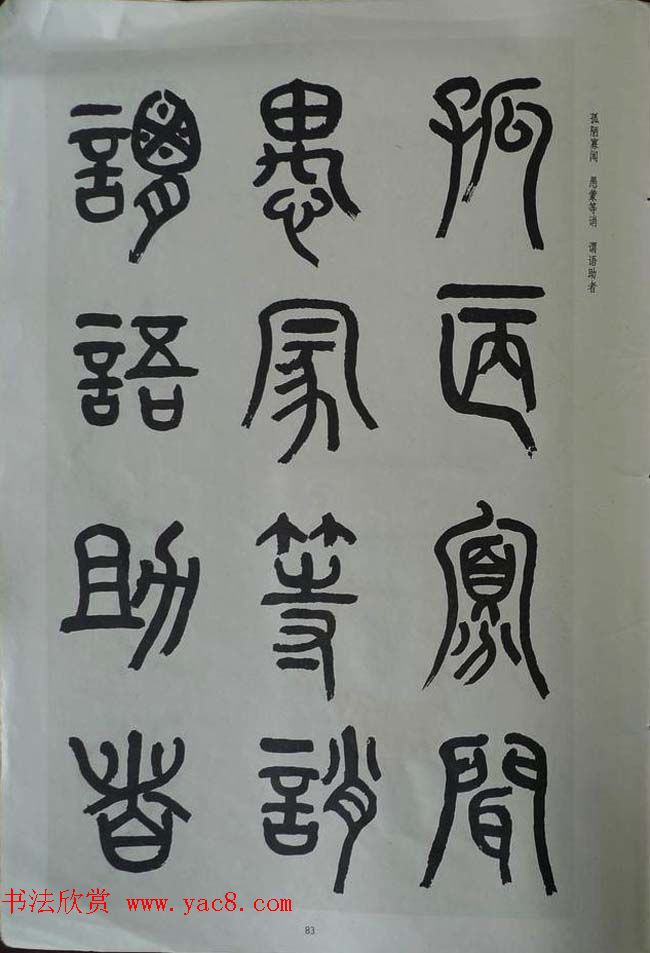 孤陋寡闻 愚蒙等诮 谓语助者
孤陋寡聞
愚蒙等誚
謂語助者
书法欣赏 www.yac8.com
83